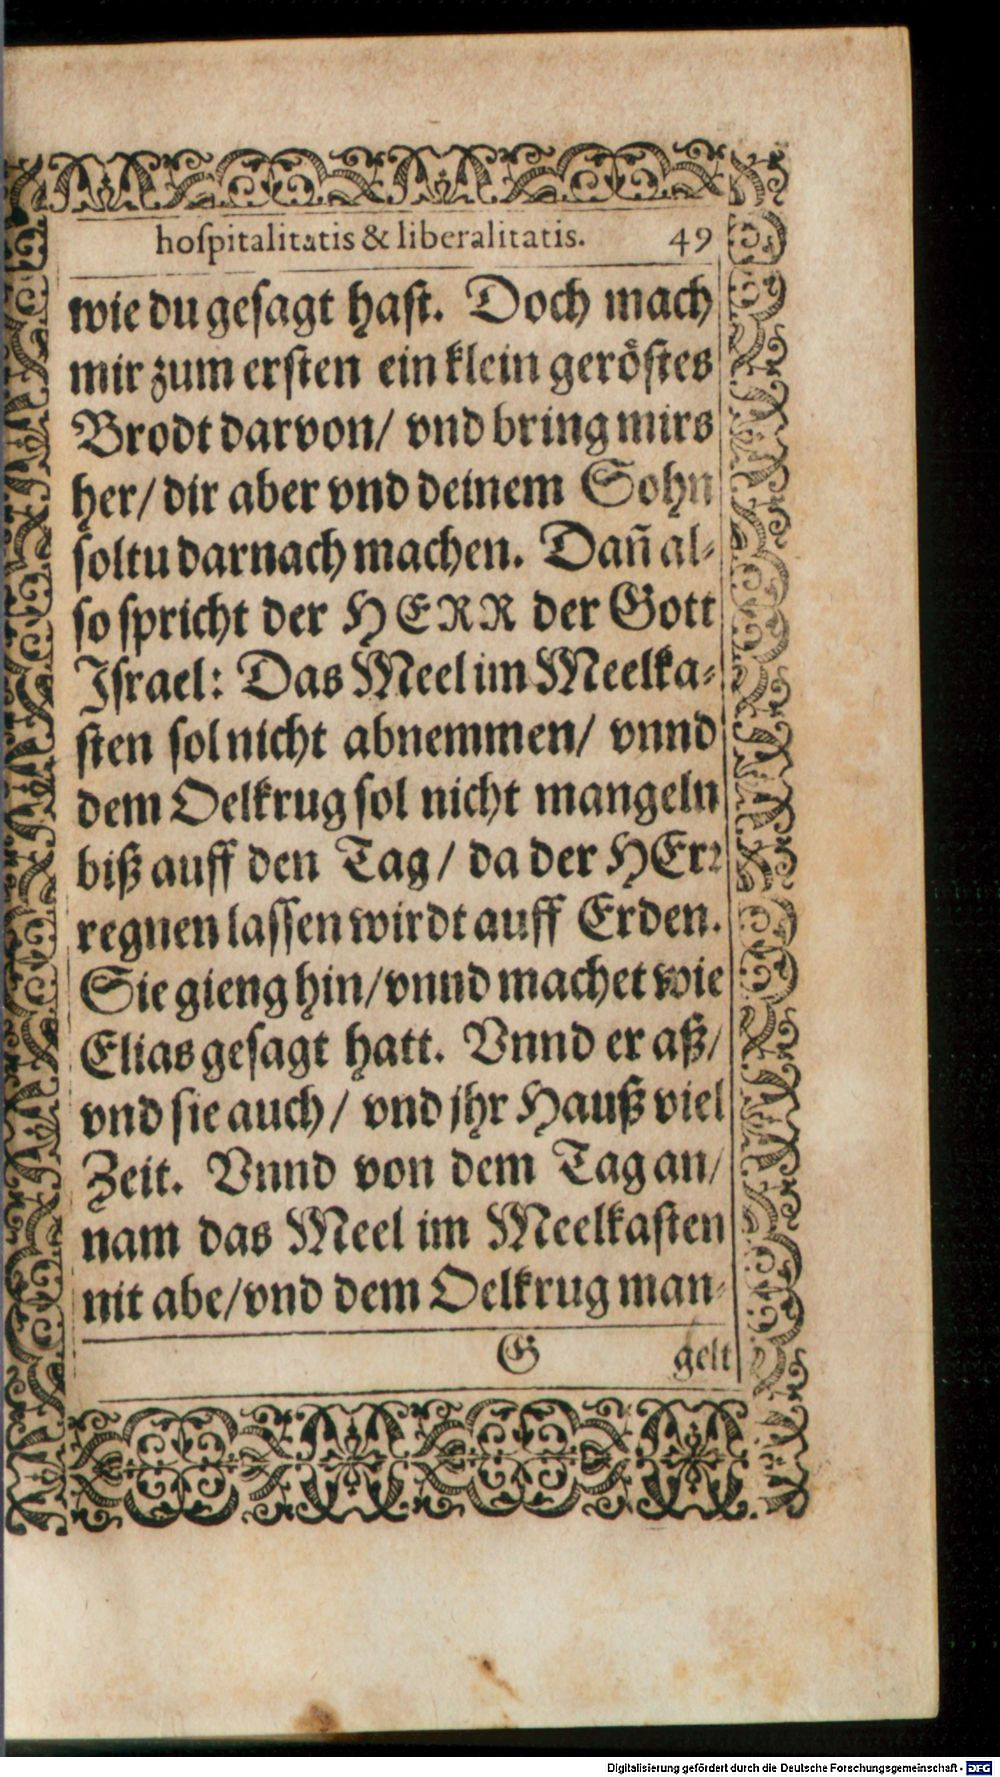 hoſpitalitatis & liberalitatis. 49
wie du geſagt haſt. Doch mach
mir zum erſten ein klein geröſtes
Brodt darvon/ vnd bring mirs
her/ dir aber vnd deinem Sohn
ſoltu darnach machen. Dañ al-
ſo ſpricht der HERR der Gott
Iſrael: Das Meel im Meelka-
ſten ſol nicht abnemmen/ vnnd
dem Oelkrug ſol nicht mangeln
biß auff den Tag/ da der HErꝛ
regnen laſſen wirdt auff Erden.
Sie gieng hin/ vnnd machet wie
Elias geſagt hatt. Vnnd er aß/
vnd ſie auch/ vnd jhr Hauß viel
Zeit. Vnnd von dem Tag an/
nam das Meel im Meelkaſten
nit abe/ vnd dem Oelkrug man-
G gelt
Digitalisierung gefördert durch die Deutsche Forschungsgemeinschaft - DFG